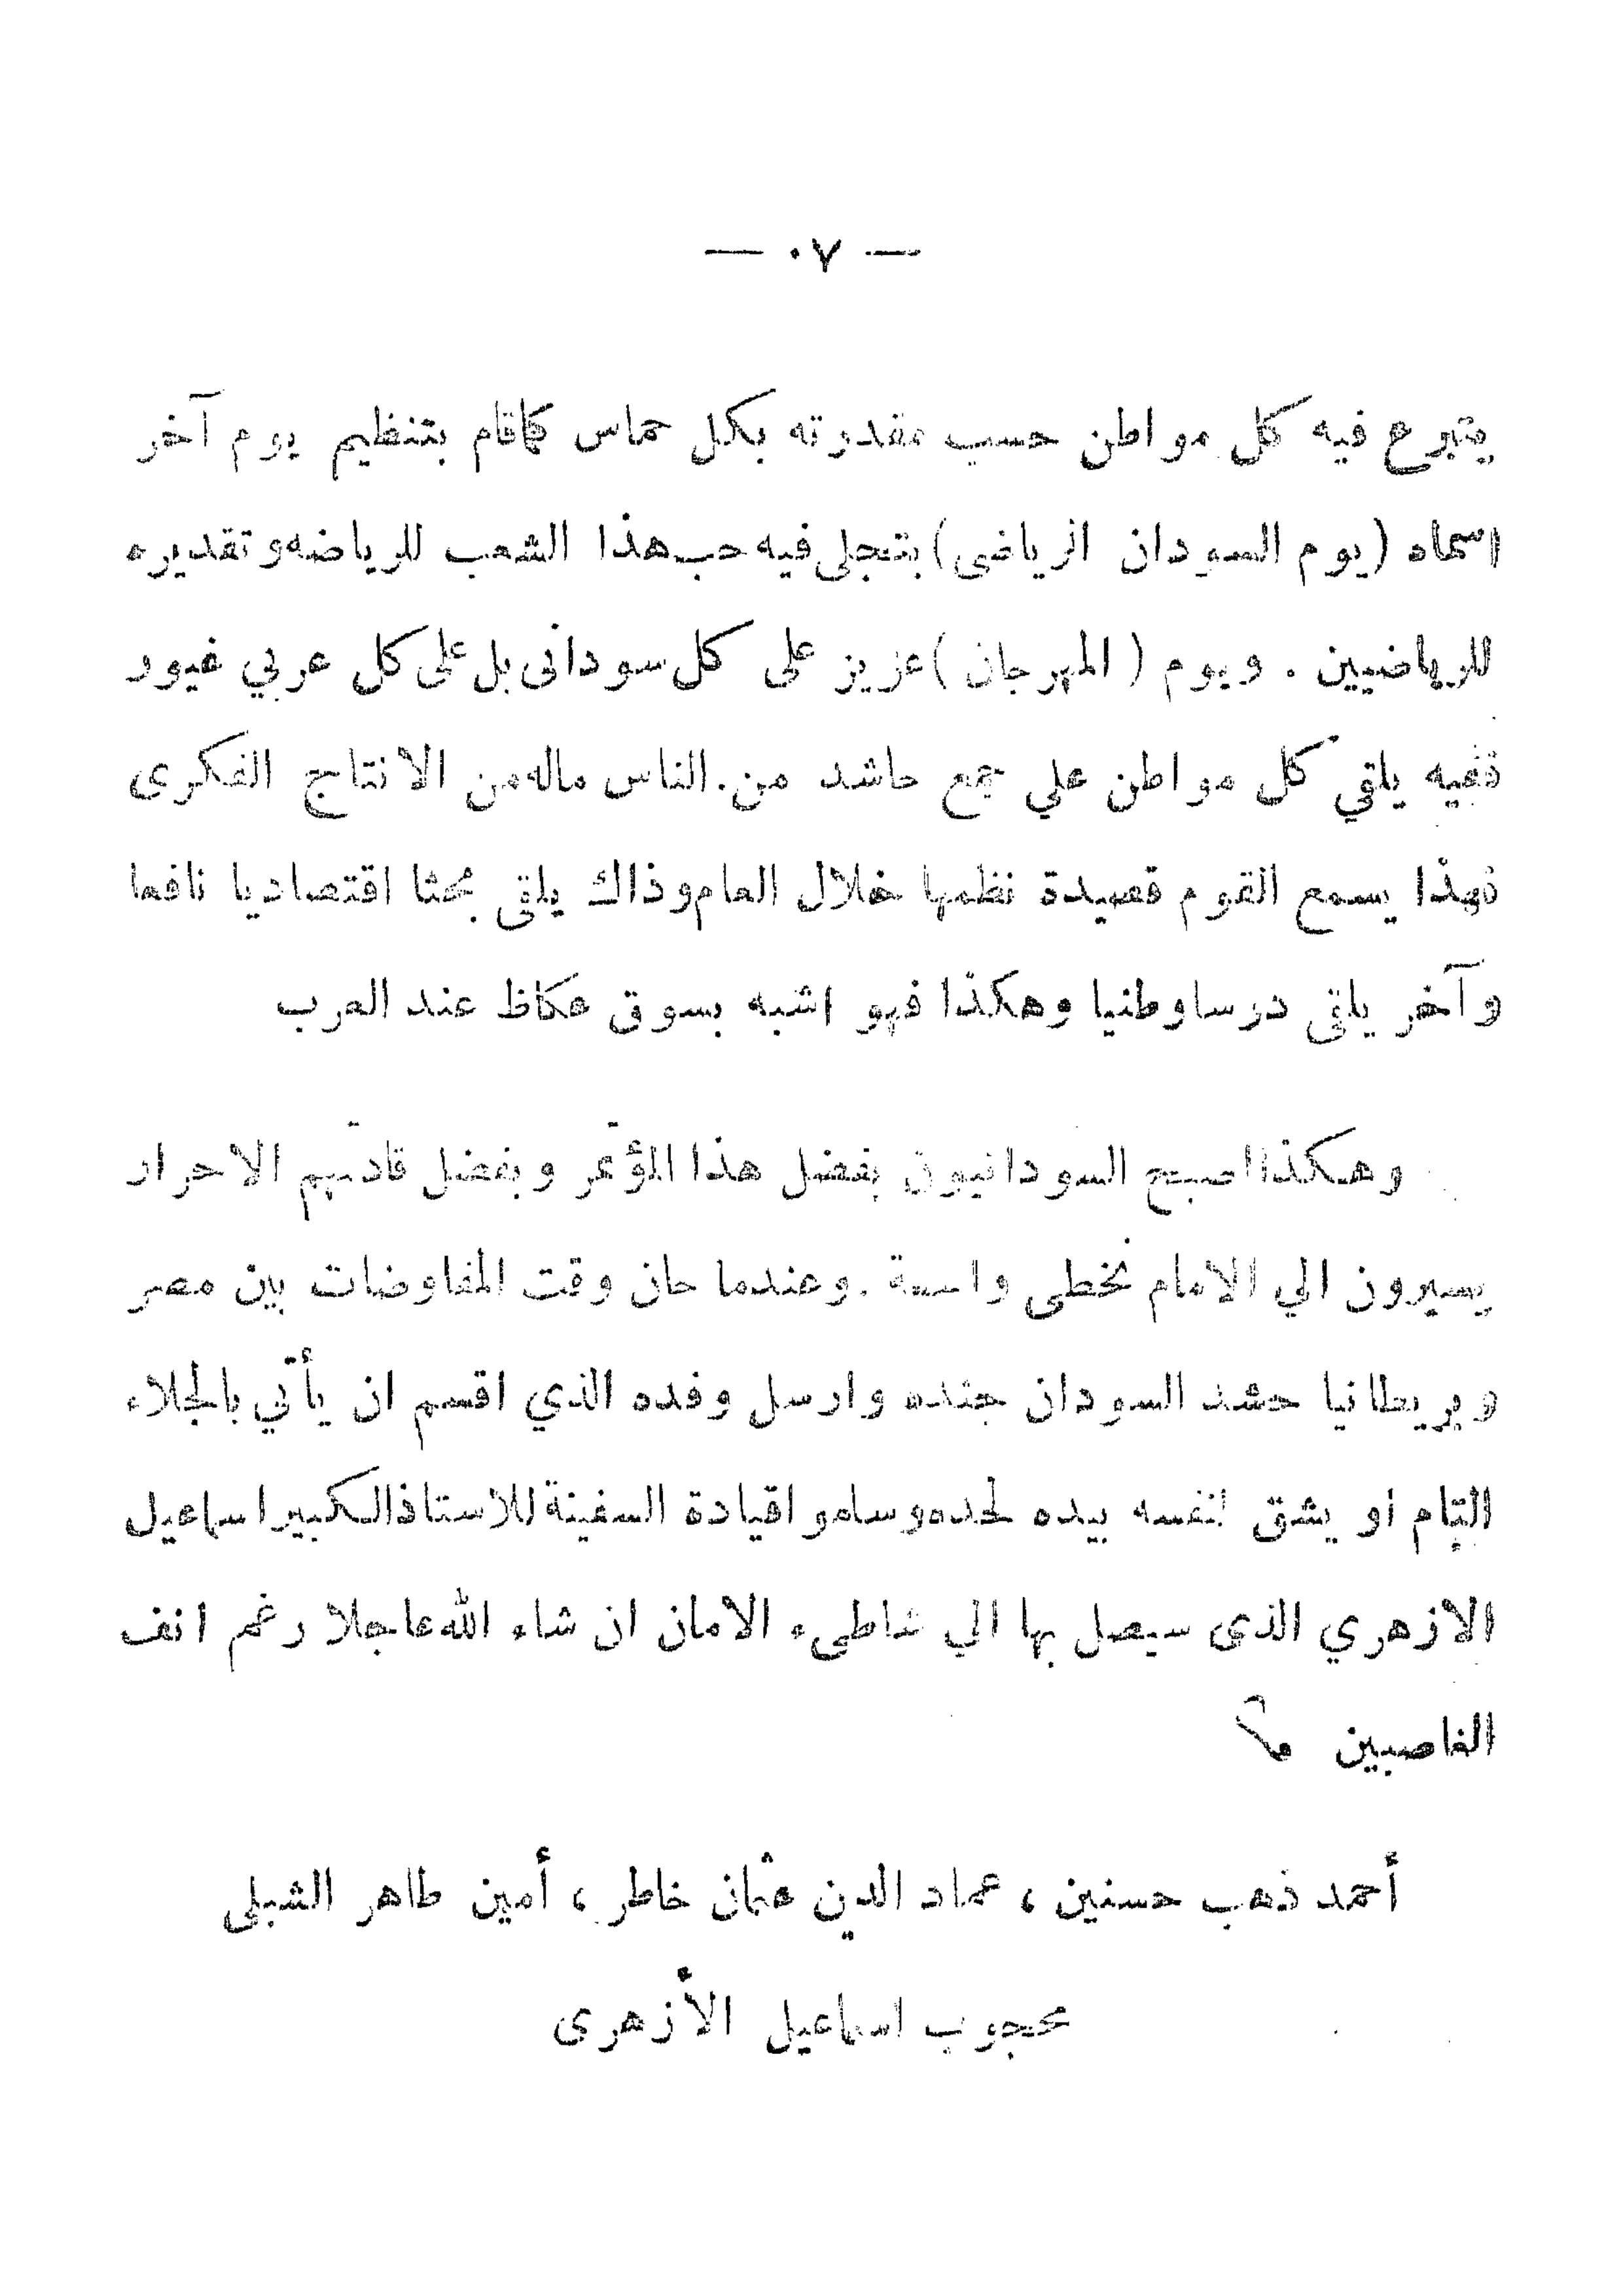 — ٧٠ —
يتبرع فيه كل مواطن حسب مقدرته بكل حماس كما قام بتنظيم يوم آخر
اسماه (يوم السودان الرياضى) يتجلى فيه حب هذا الشعب للرياضه وتقديره
للرياضيين . ويوم ( المهرجان ) عزيز على كل سودانى بل على كل عربي غيور
ففيه يلقي كل مواطن علي جمع حاشد من . الناس ماله من الانتاج الفكرى
فهذا يسمع القوم قصيدة نظمها خلال العام وذاك يلقى بحثا اقتصاديا نافعا
وآخر يلقى درسا وطنيا وهكذا فهو اشبه بسوق عكاظ عند العرب
وهكذا اصبح السودانيون بفضل هذا المؤتمر وبفضل قادتهم الاحرار
يسيرون الي الامام بخطى واسعة . وعندما حان وقت المفاوضات بين مصر
وبريطانيا حشد السودان جنده وارسل وفده الذي اقسم ان يأتي بالجلاء
التام او يشق لنفسه بيده لحده وسلمو اقيادة السفينة للاستاذ الكبير اسماعيل
الازهري الذى سيصل بها الي شاطىء الامان ان شاء الله عاجلا رغم انف
الغاصبين
أحمد ذهب حسنين ، عماد الدين عثمان خاطر ، أمين طاهر الشبلى
محجوب اسماعيل الأزهرى